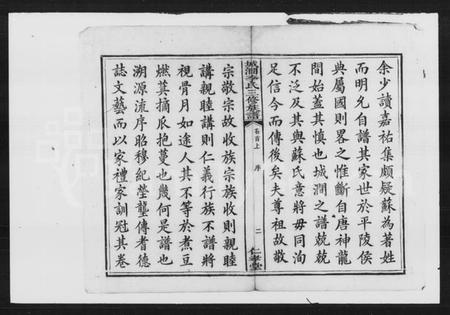 余少讀嘉祐集頗疑蘇為著姓
而明允自譜其家世於平陵侯
典屬國則畧之惟斷自唐神龍
間始蓋其慎也城澗之譜兢兢
不泛及其與蘇氏意將毋同洵
足信今而傳後矣夫尊祖故敬
城澗李氏三修族譜
卷首上
序
二
仁孝堂
宗敬宗故收族宗族收則親睦
講親睦講則仁義行族不譜將
視骨月如途人其不等於煮豆
燃萁摘瓜抱蔓也幾何是譜也
溯源流序昭穆紀塋壟傳耆德
誌文藝而以家禮家訓冠其卷